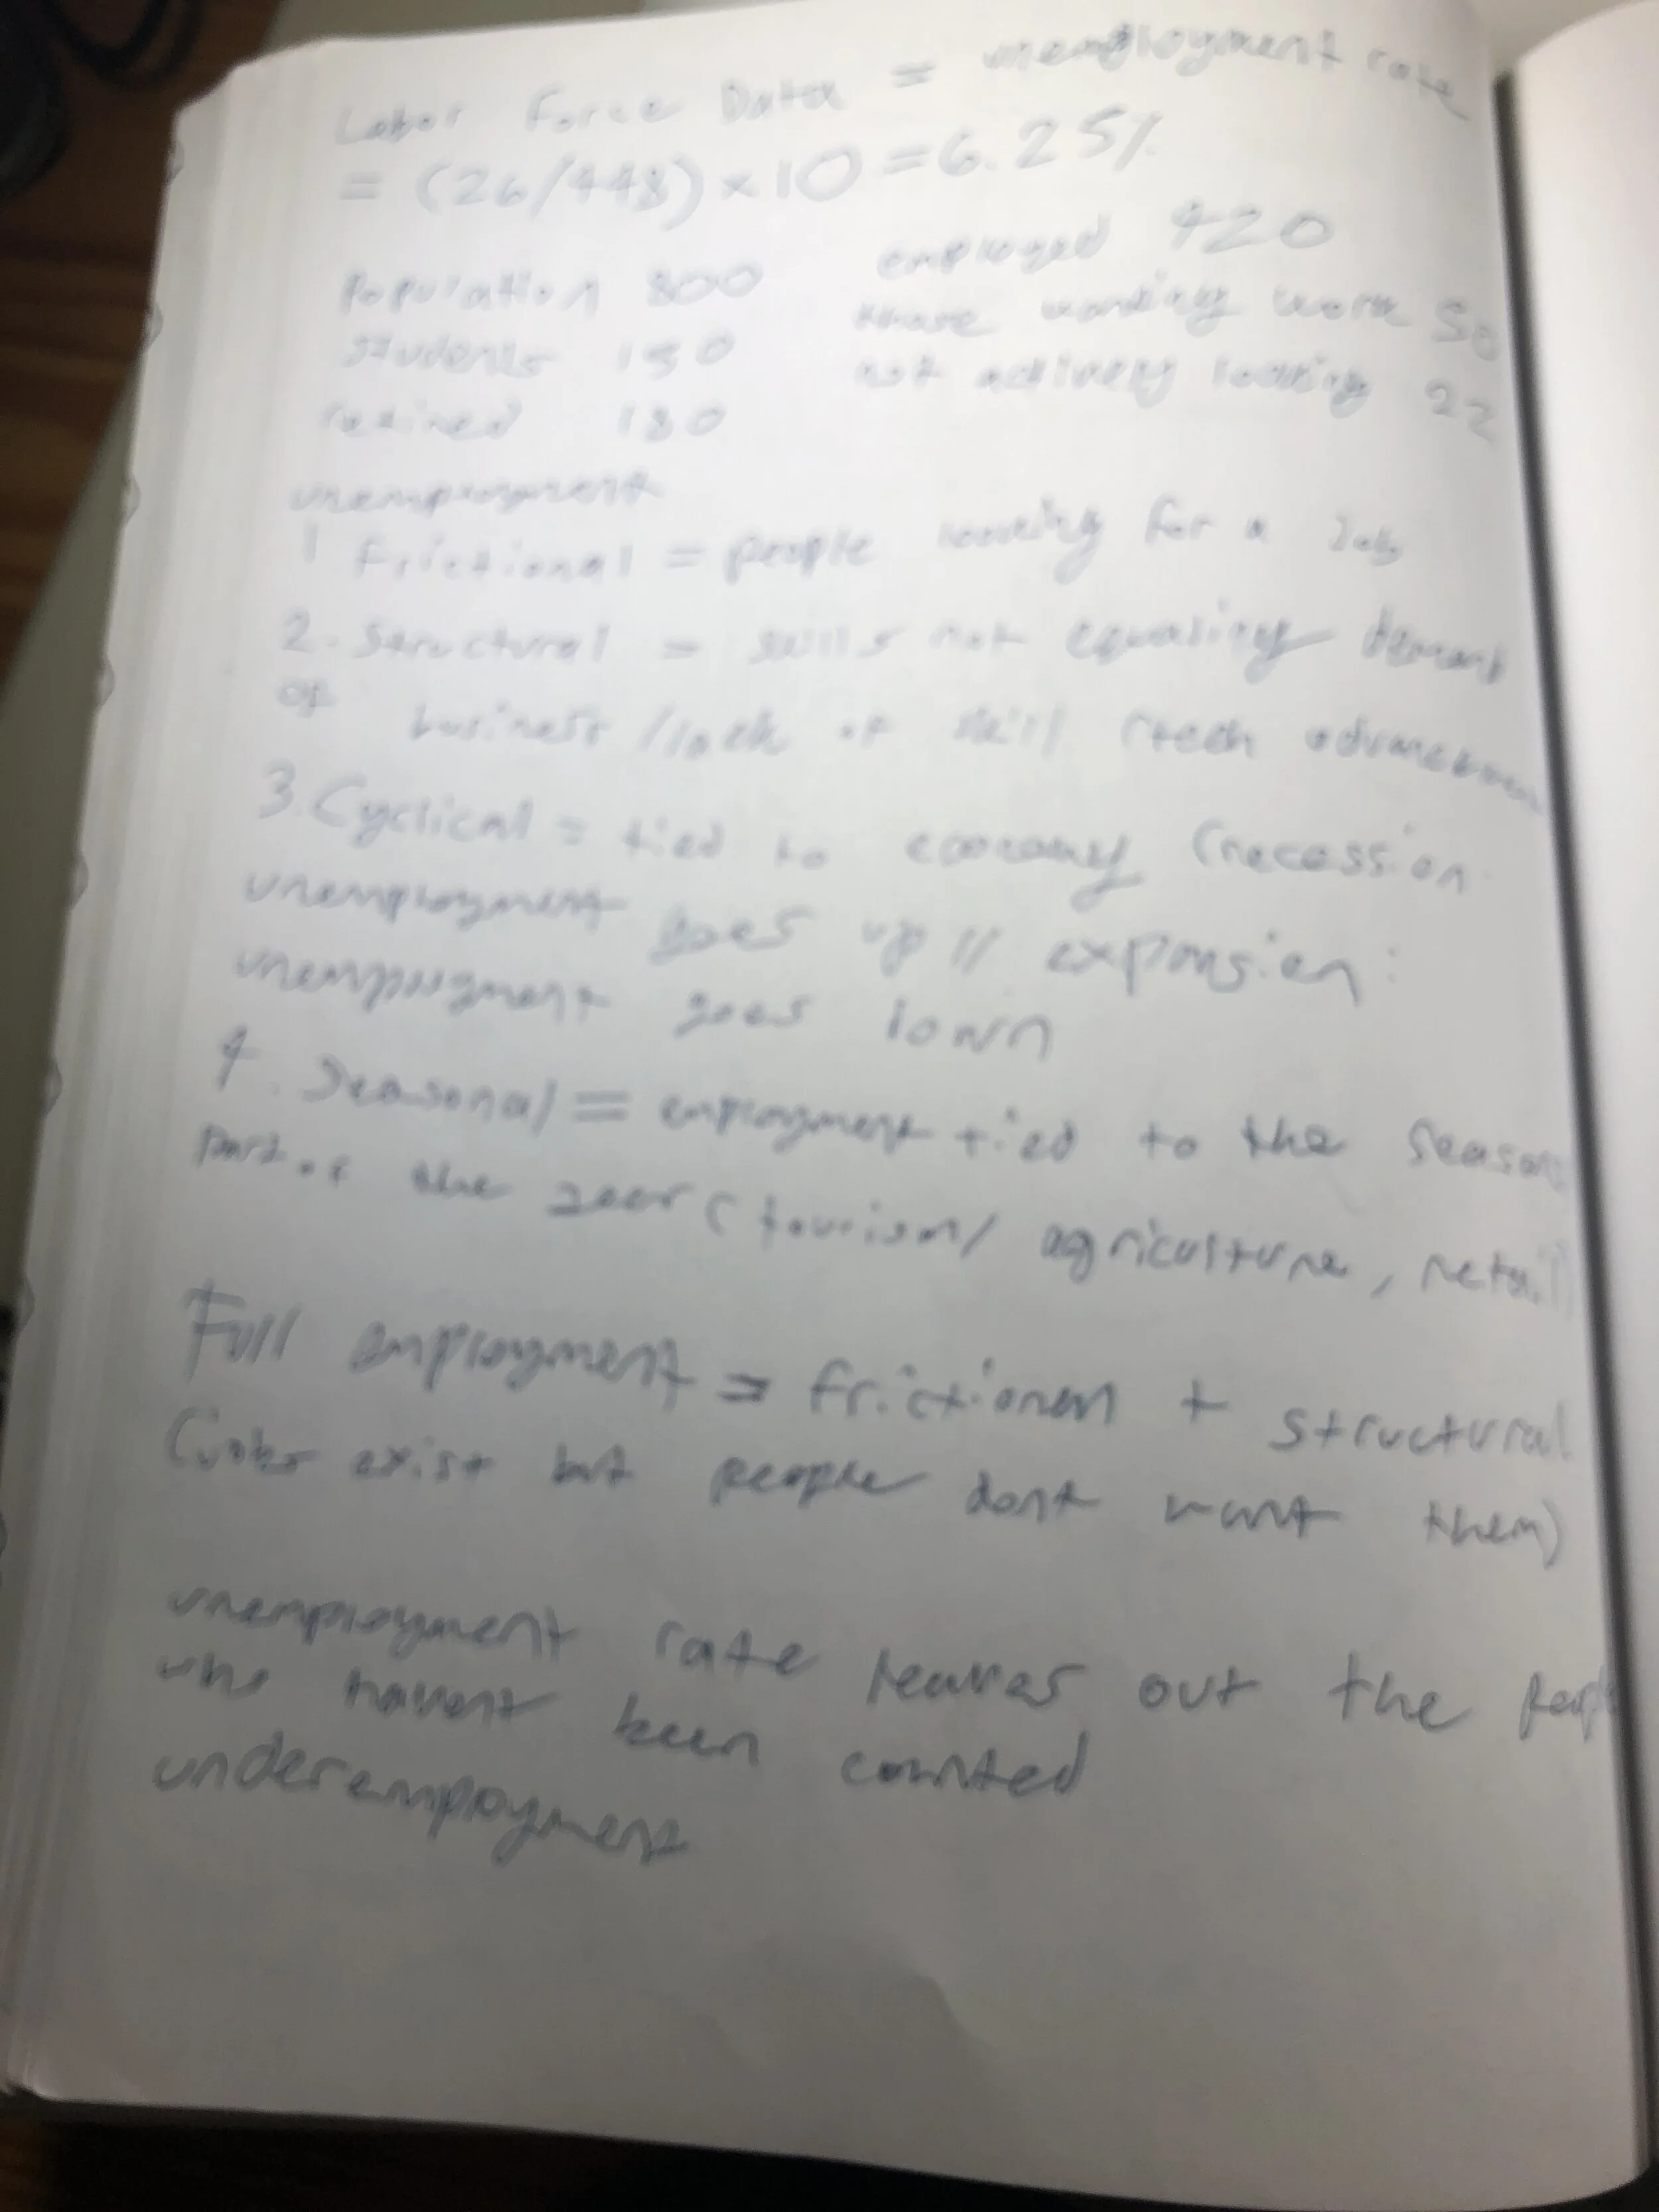 Labor Force Data = unemployment rate
= (26/448) x 10 = 6.25%
Population 800 employed 420
students 150 those wanting work 50
retired 180 not actively looking 22
unemployment
1 Frictional = people looking for a Job
2. Structural = skills not equaling demand
of business / lack of skill (tech advancement
3. Cyclical = tied to economy (recession
unemployment goes up // expansion:
unemployment goes down
4. Seasonal = employment tied to the season
part of the year (tourism/ agriculture, retail)
Full employment = frictional + structural
(jobs exist but people dont want them)
unemployment rate leaves out the
who havent been counted
underemployment